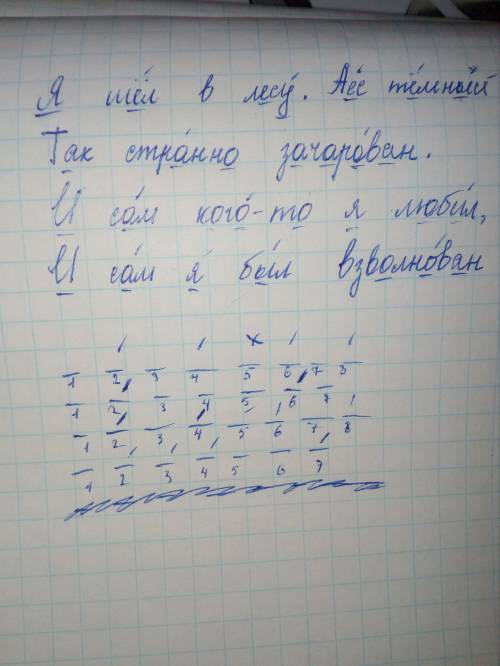 Я шёл в лесу. Лес тёмный
Так странно зачарован.
И сам кого-то я любил,
И сам я был взволнован
1 2 3 4 5 6 7 8
1 2 3 4 5 6 7
1 2 3 4 5 6 7 8
1 2 3 4 5 6 7